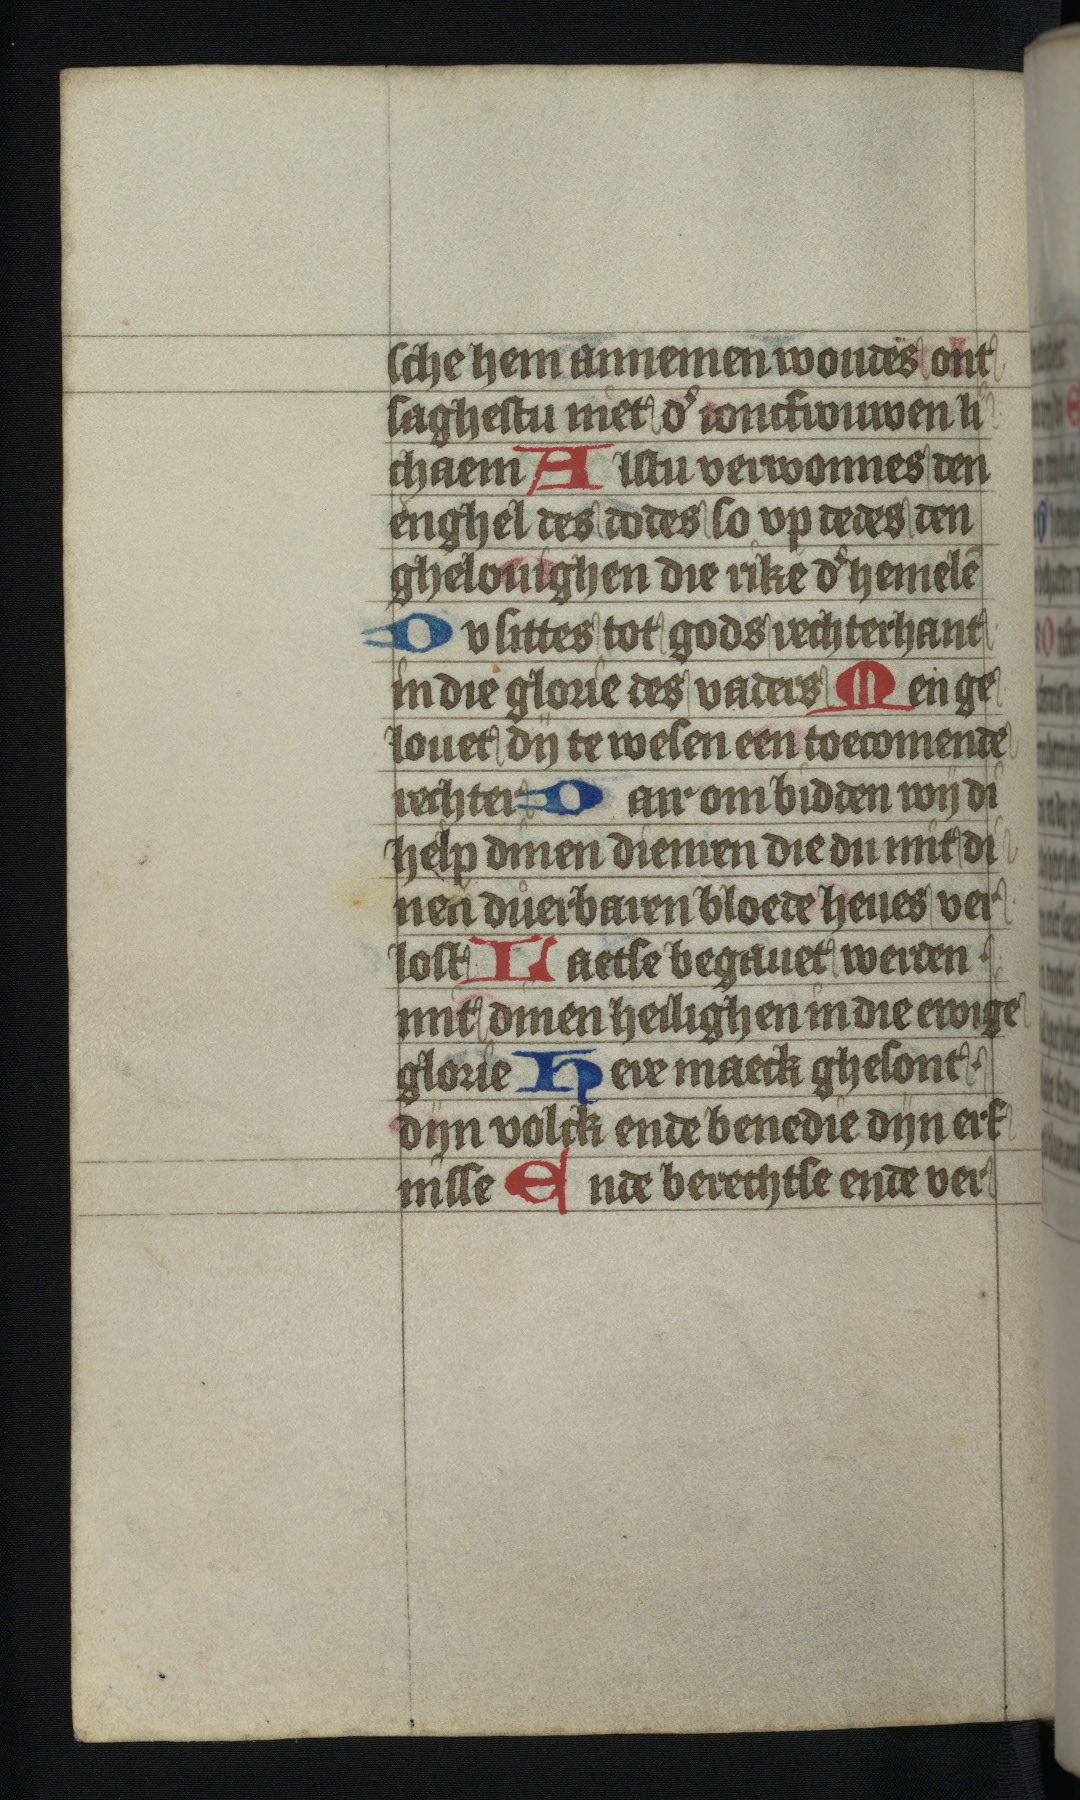 sche hem annemen woudes ont
saghestu niet d᾽ ioncfrouwen li
chaem Alstu verwonnes den
enghel des dodes so vp dedes den
ghelouighen die rike d᾽ hemelē
Du sittes tot gods rechterhant
in die glorie des vaders Men ge
louet dij te wesen een toecomende
rechter Dair om bidden wij di
help dinen dienren die du mit di
nen duerbaren bloede heues ver
lost Laetse begauet werden
mit dinen heilighen in die ewige
glorie Here maeck ghesont
dijn volck ende benedie dijn erf
nisse Ende berechtse ende ver